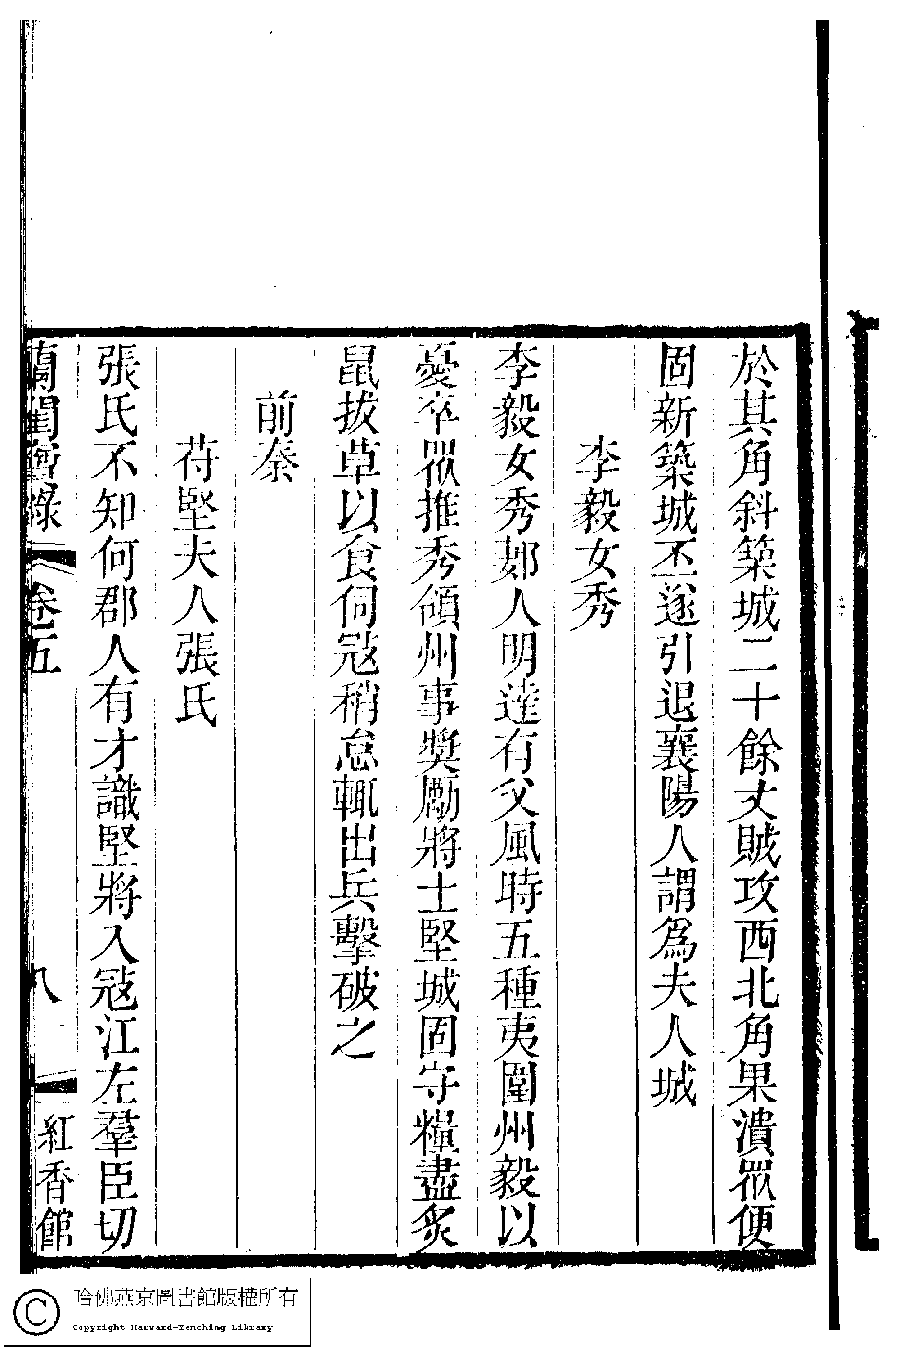 於其角斜築城二十餘丈賊攻西北角果潰眾便
固新築城丕遂引退襄陽人謂爲夫人城
李毅女秀
李毅女秀郪人明達有父風時五種夷圍州毅以
憂卒眾推秀領州事獎厲將士堅城固守糧盡炙
鼠拔草以食伺冦稍怠輒出兵擊破之
前秦
苻堅夫人張氏
張氏不知何郡人有才識堅將入冦江左羣臣切
蘭閨寶錄 卷五 八 紅香館
哈佛燕京圖書館版權所有
Copyright Harvard-Yenching Library